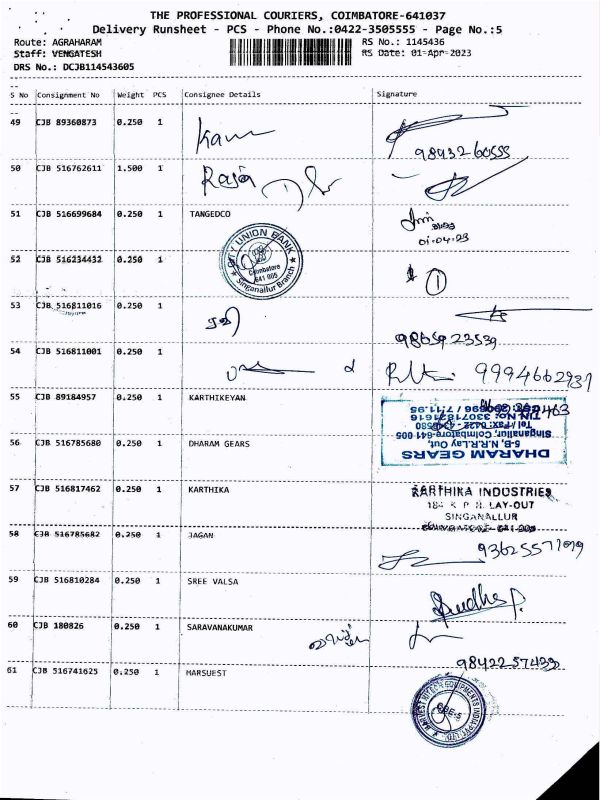 THE PROFESSIONAL COURIERS, COIMBATORE-641037
Delivery Runsheet - PCS - Phone No.:0422-3505555 - Page No.:5
Route: AGRAHARAM RS No.: 1145436
Staff: VENGATESH RS Date: 01-Apr-2023
DRS No.: DCJB114543605
S No Consignment No Weight PCS Consignee Details Signature
49 CJB 89360873 0.250 1
9893260555
50 CJB 516762611 1.500 1 Raja
51 CJB 516699684 0.250 1 TANGEDCO
01.04.23
52 CJB 516234432 0.250 1 CITY UNION BANK Coimbatore 641 005 Singanallur Branch 1
53 CJB 516811016 0.250 1 ரவி
9865923539
54 CJB 516811001 0.250 1
9994662937
55 CJB 89184957 0.250 1 KARTHIKEYAN
56 CJB 516785680 0.250 1 DHARAM GEARS
DHARAM GEARS
5-B, N.R.R.Lay Out,
Singanallur, Coimbatore-641 005
57 CJB 516817462 0.250 1 KARTHIKA KARTHIKA INDUSTRIES
LAY-OUT
SINGANALLUR
58 CJB 516785682 0.250 1 JAGAN
59 CJB 516810284 0.250 1 SREE VALSA
60 CJB 180826 0.250 1 SARAVANAKUMAR
9842257433
61 CJB 516741625 0.250 1 MARSUEST